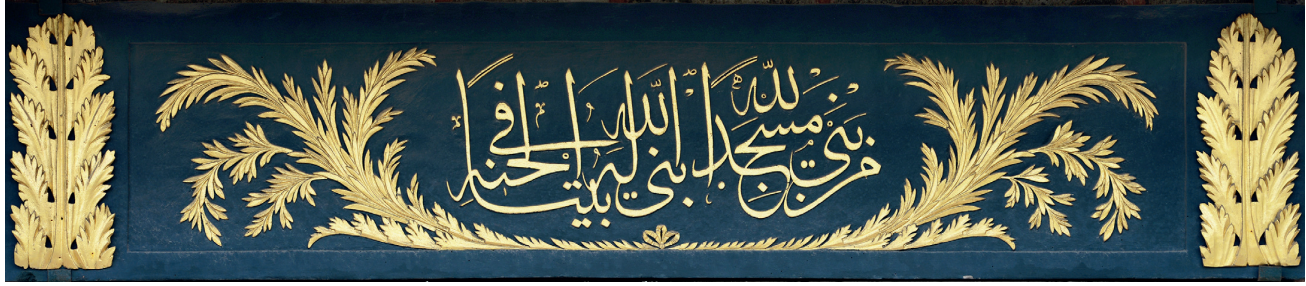 من بنى لله مسجدا بنى الله له بيتا في الجنة